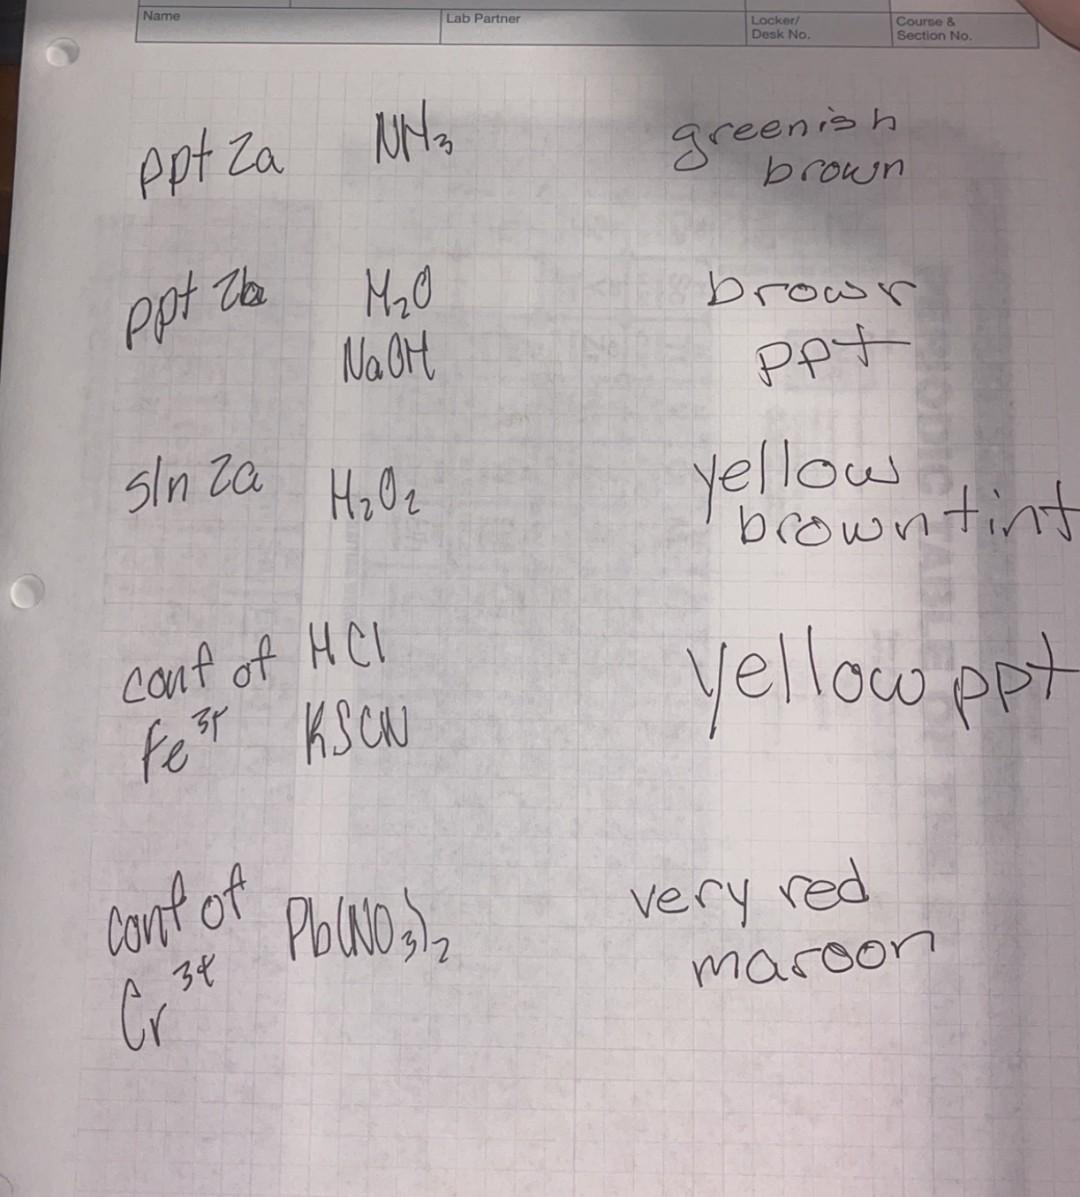 Name Lab Partner Locker/ Desk No. Course & Section No.
ppt 2a NH3 greenish
brown
ppt 2b H2O brown
NaOH ppt
sln 2a H2O2 yellow
brown tint
conf of HCl yellow ppt
Fe3+ KSCN
conf of Pb(NO3)2 very red
maroon
Cr3+